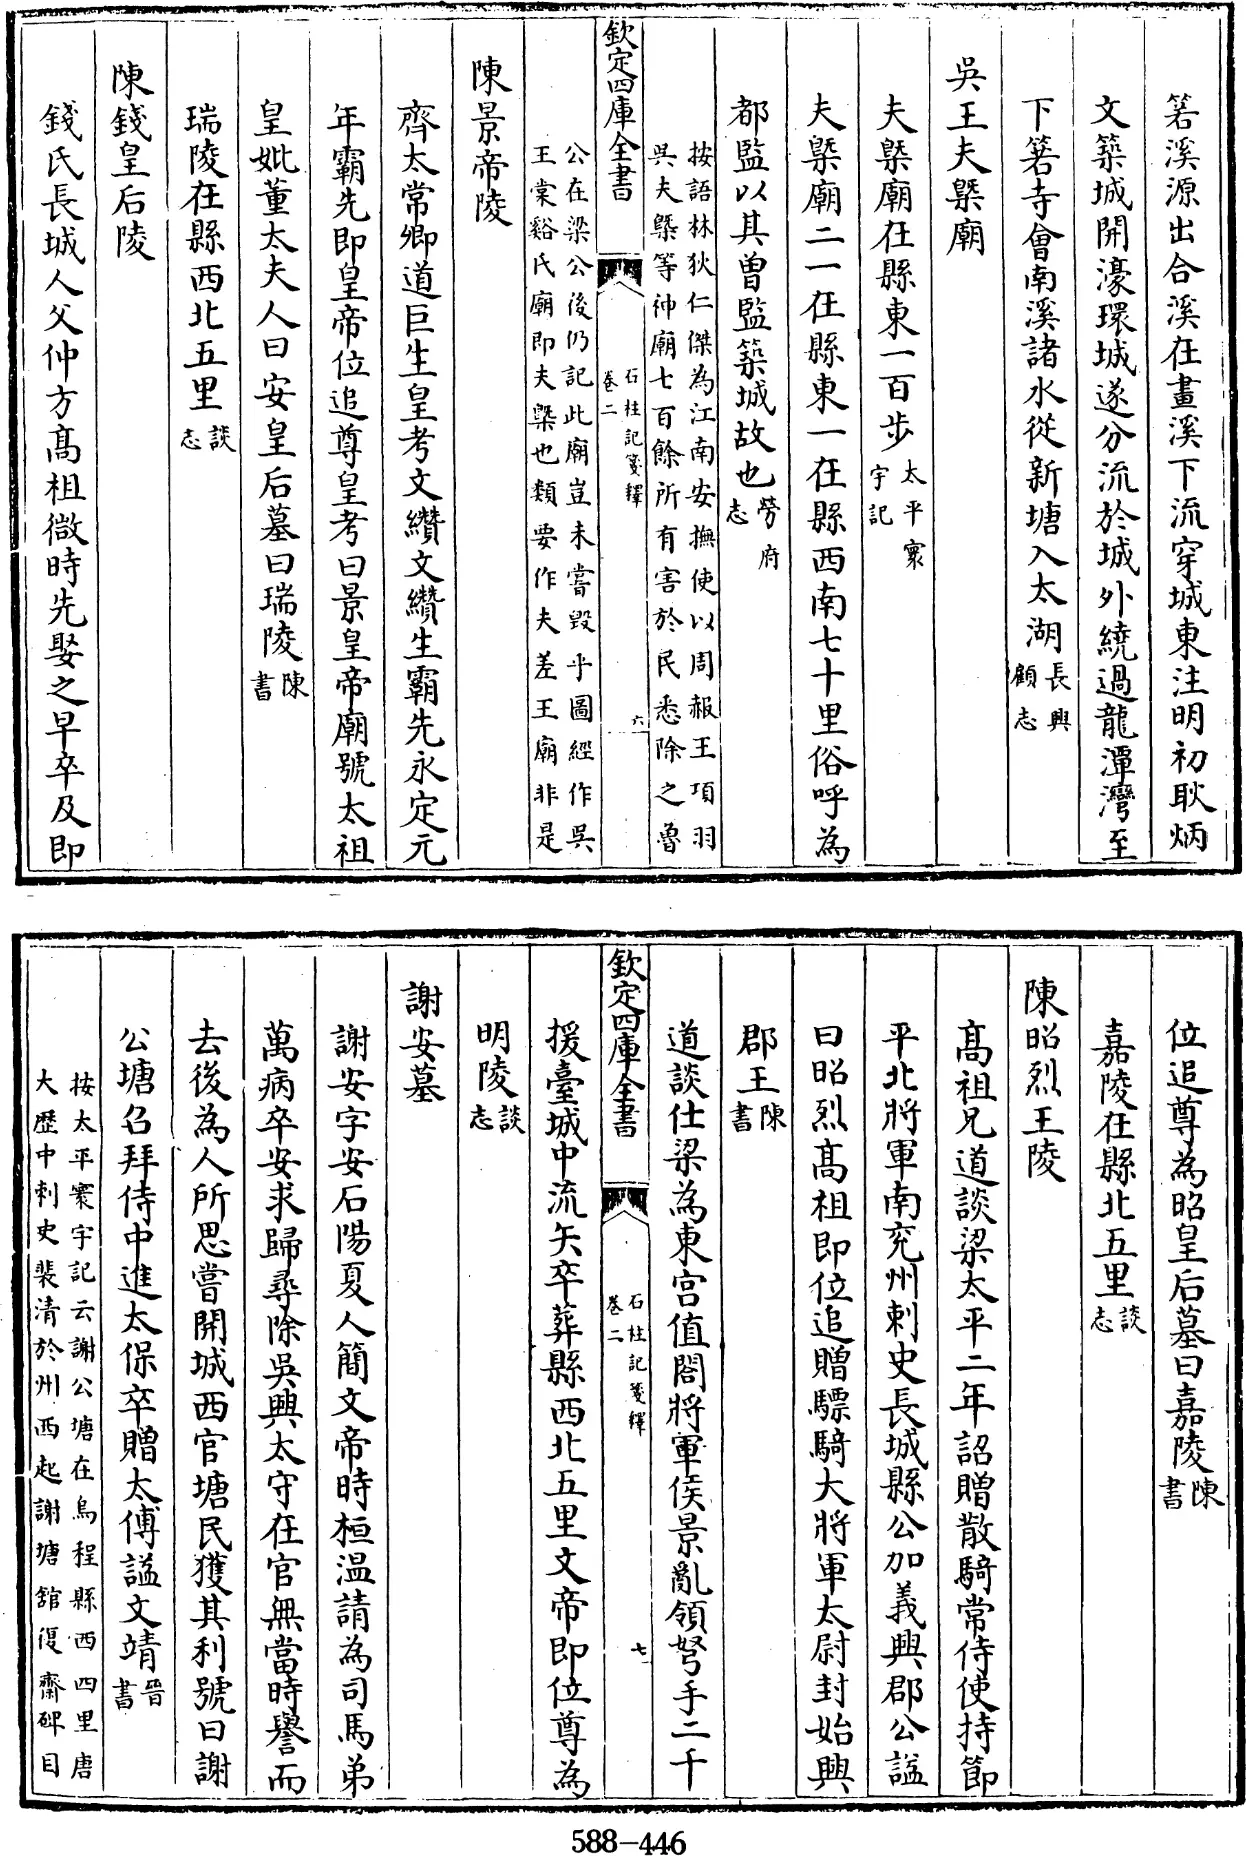 箬溪源出合溪在畫溪下流穿城東注明初耿炳
文築城開濠環城遂分流於城外繞過龍潭灣至
下箬寺會南溪諸水從新塘入太湖長興顧志
吳王夫槩廟
夫槩廟在縣東一百步太平寰宇記
夫槩廟二一在縣東一在縣西南七十里俗呼為
都監以其曾監築城故也勞府志
按語林狄仁傑為江南安撫使以周赧王項羽
吳夫槩等神廟七百餘所有害於民悉除之魯
欽定四庫全書
石柱記箋釋
卷二
六
公在梁公後仍記此廟豈未嘗毀乎圖經作吳
王棠谿氏廟即夫槩也類要作夫差王廟非是
陳景帝陵
齊太常卿道巨生皇考文纘文纘生霸先永定元
年霸先即皇帝位追尊皇考曰景皇帝廟號太祖
皇妣董太夫人曰安皇后墓曰瑞陵陳書
瑞陵在縣西北五里談志
陳錢皇后陵
錢氏長城人父仲方髙祖微時先娶之早卒及即
位追尊為昭皇后墓曰嘉陵陳書
嘉陵在縣北五里談志
陳昭烈王陵
髙祖兄道談梁太平二年詔贈散騎常侍使持節
平北將軍南兖州刺史長城縣公加義興郡公諡
曰昭烈髙祖即位追贈驃騎大將軍太尉封始興
郡王陳書
道談仕梁為東宫值閤將軍侯景亂領弩手二千
欽定四庫全書
石柱記箋釋
卷二
七
援臺城中流矢卒葬縣西北五里文帝即位尊為
明陵談志
謝安墓
謝安字安石陽夏人簡文帝時桓温請為司馬弟
萬病卒安求歸尋除吳興太守在官無當時譽而
去後為人所思嘗開城西官塘民獲其利號曰謝
公塘召拜侍中進太保卒贈太傅諡文靖晉書
按太平寰宇記云謝公塘在烏程縣西四里唐
大歴中刺史裴清於州西起謝塘館復齋碑目
588-446